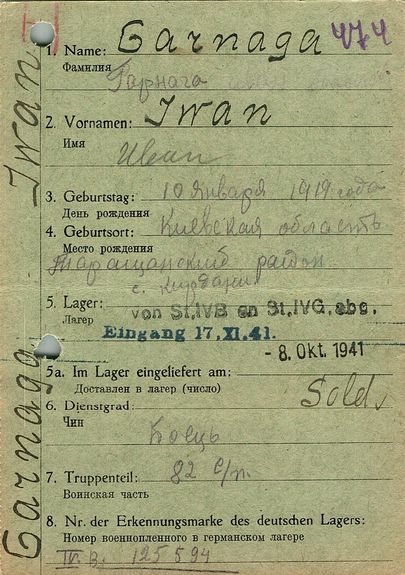 Garnaga 474
1. Name:
Фамилия Гарнага
2. Vornamen: Iwan
Имя Иван
3. Geburtstag: 10 Января 1919 года
День рождения
4. Geburtsort: Киевская область
Место рождения
Таращанский район
с.
5. Lager: von St.IVB an St.IVG. abg.
Лагер
Eingang 17.XI.41.
- 8. Okt. 1941
5a. Im Lager eingeliefert am:
Доставлен в лагер (число)
Sold.
6. Dienstgrad:
Чин
Боець
7. Truppenteil: 82 с/п.
Воинская часть
8. Nr. der Erkennungsmarke des deutschen Lagers:
Номер военнопленного в германском лагере
IV. B. 125594
Garnaga Iwan